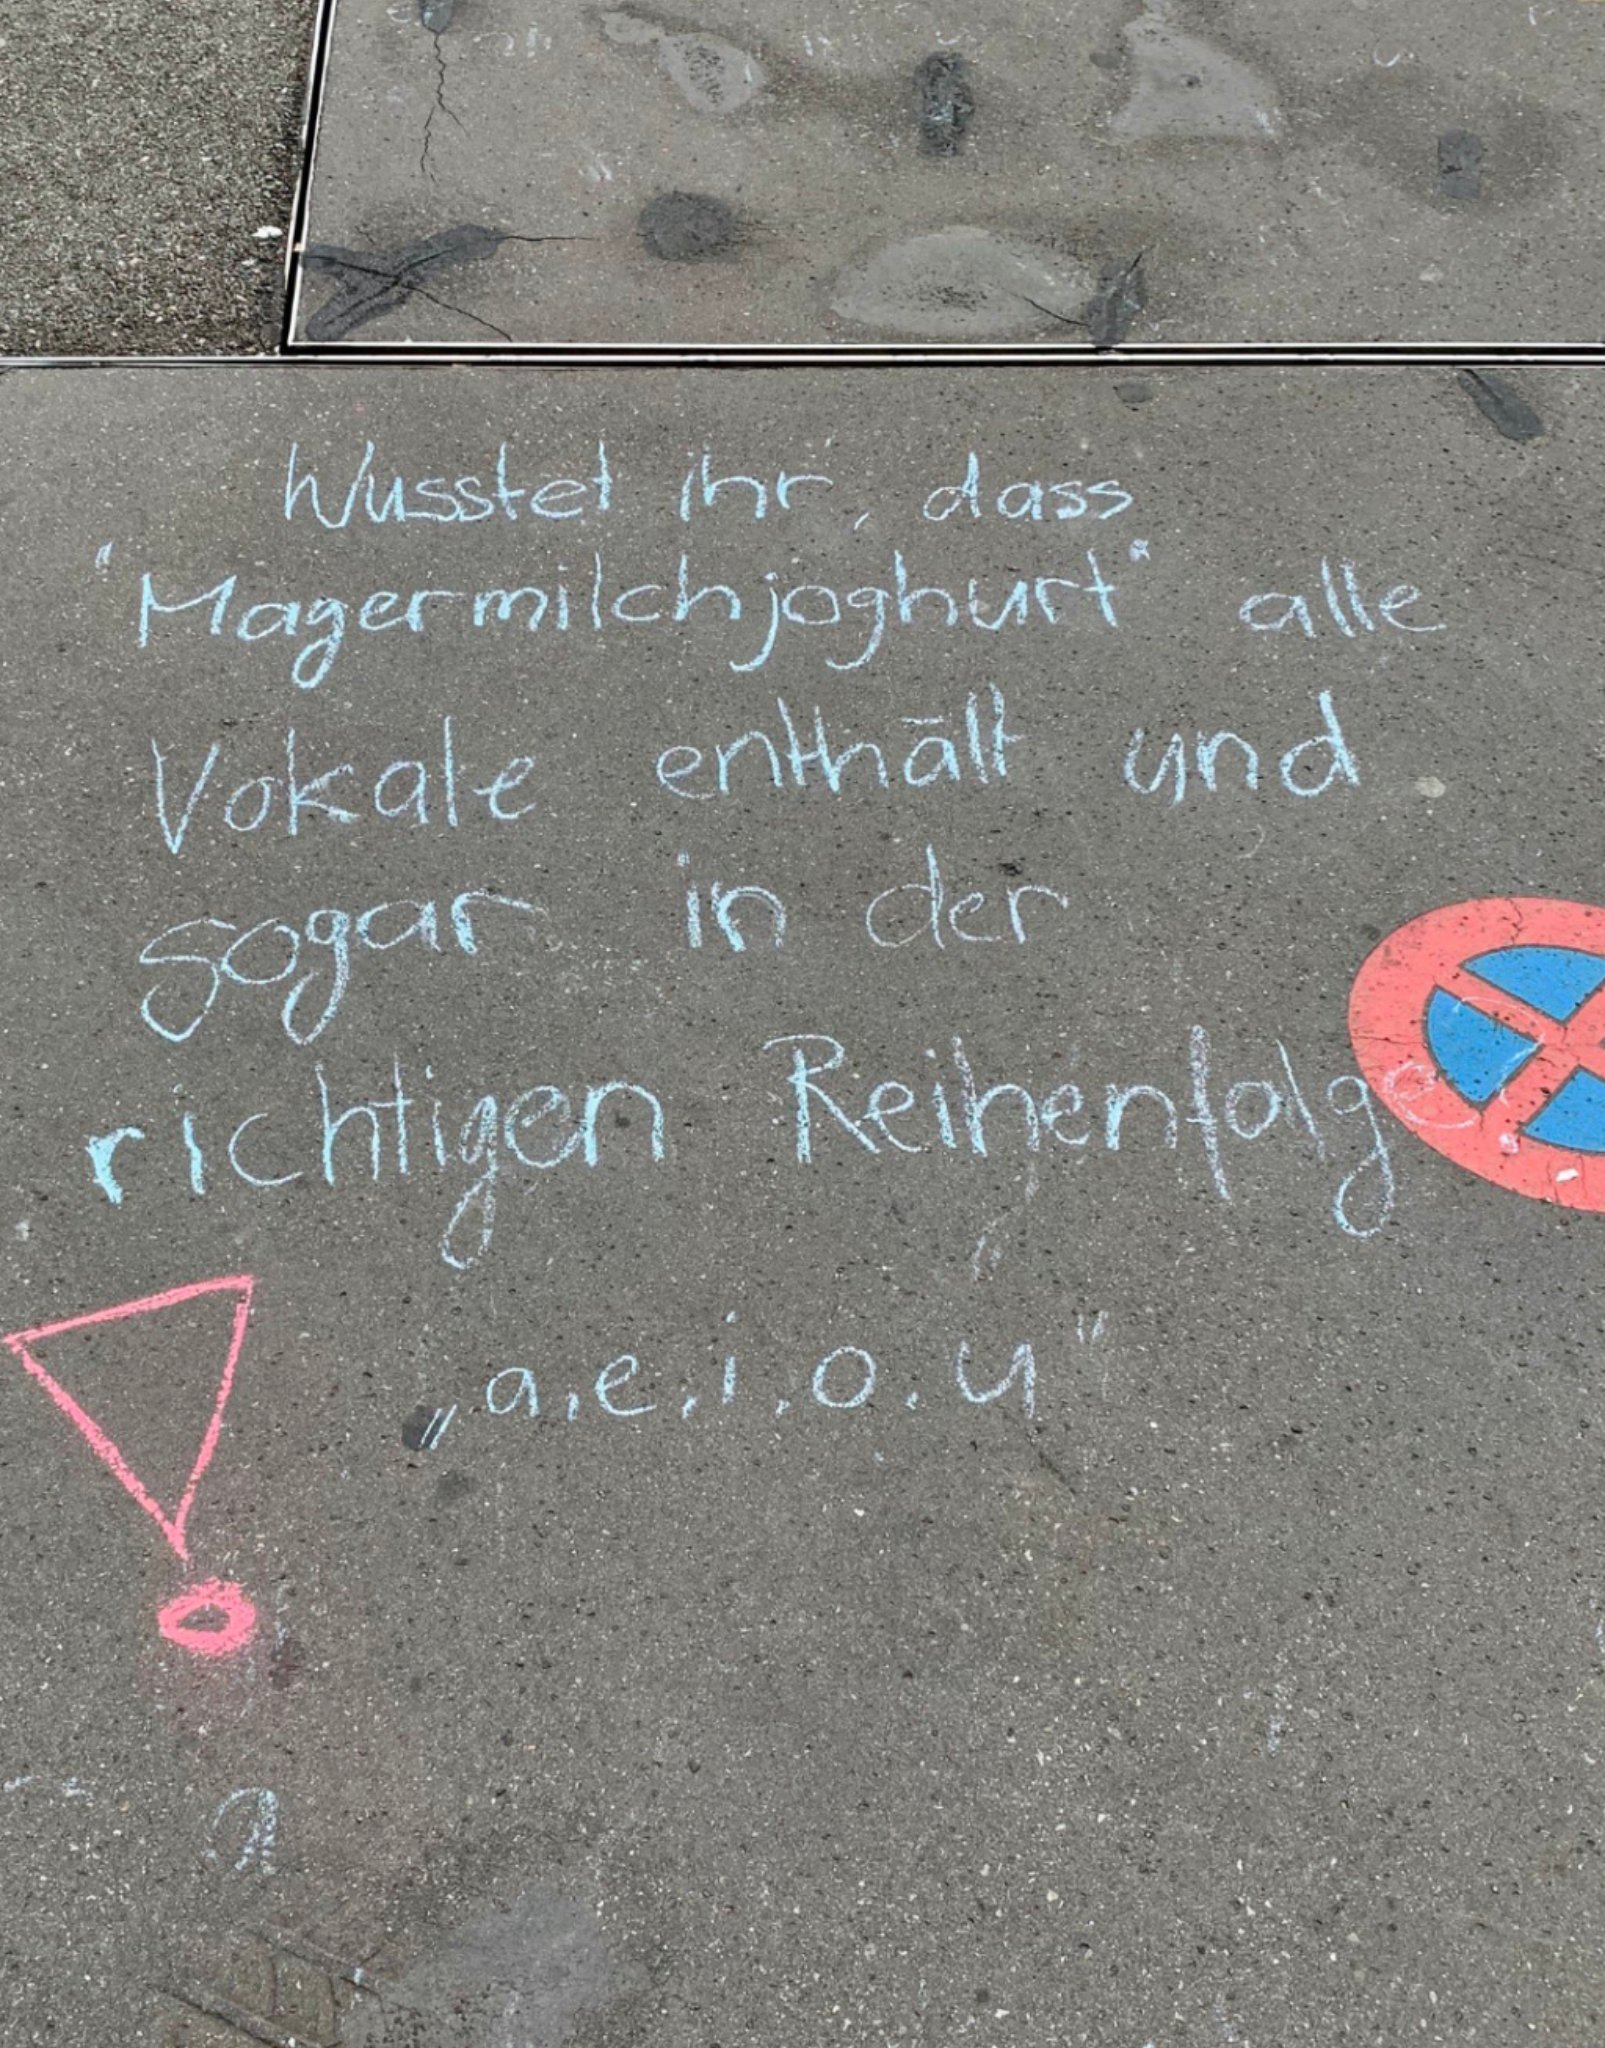 Wusstet ihr, dass
"Magermilchjoghurt" alle
Vokale enthält und
sogar in der
richtigen Reihenfolge?
„a.e.i.o.u"